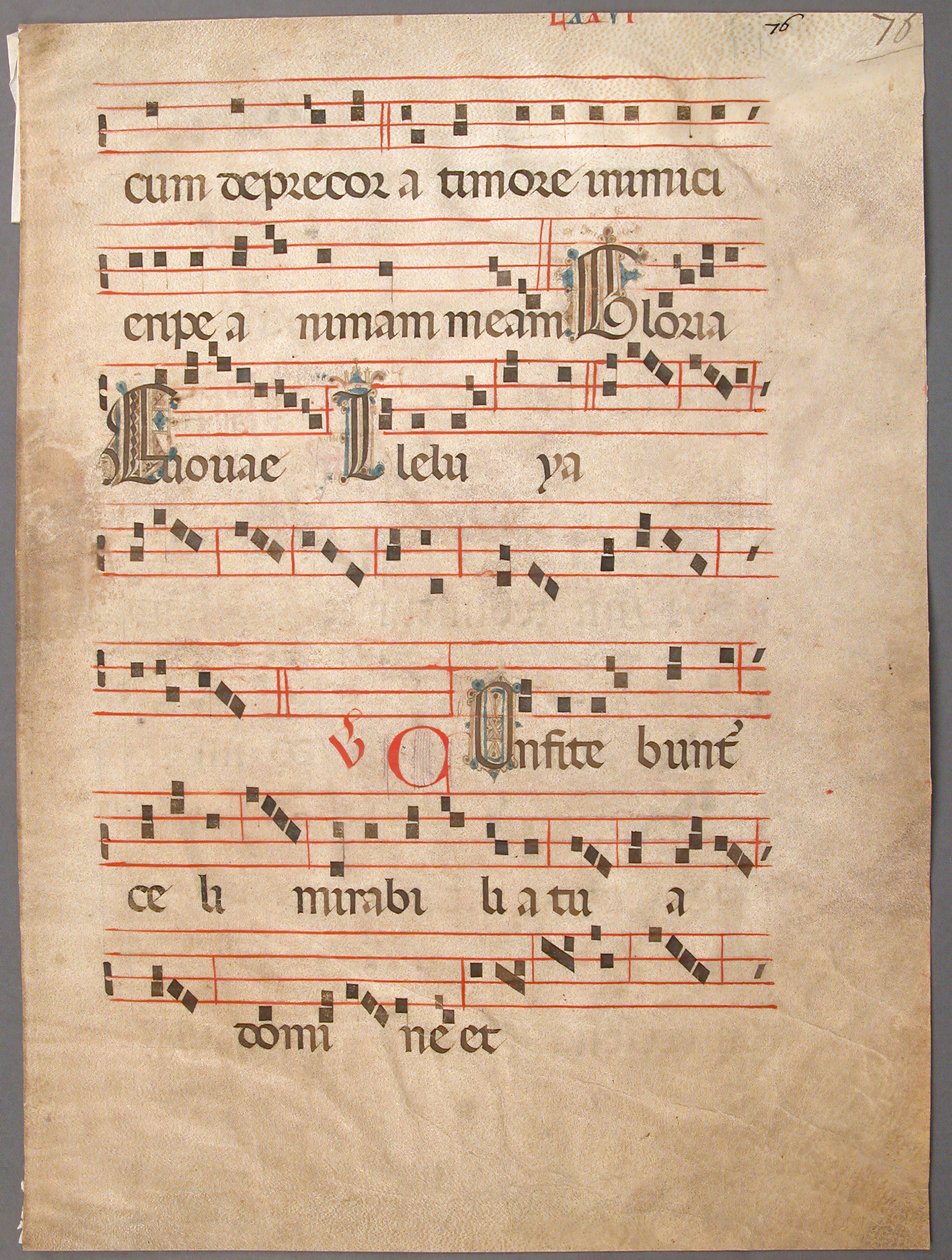 LXXVI 76 76
cum deprecor a timore inimici
eripe a nimam meam Gloria
Euouae Llelu ya
℣ O Onfite bunt᷑
ce li mirabi li a tu a
domi ne et